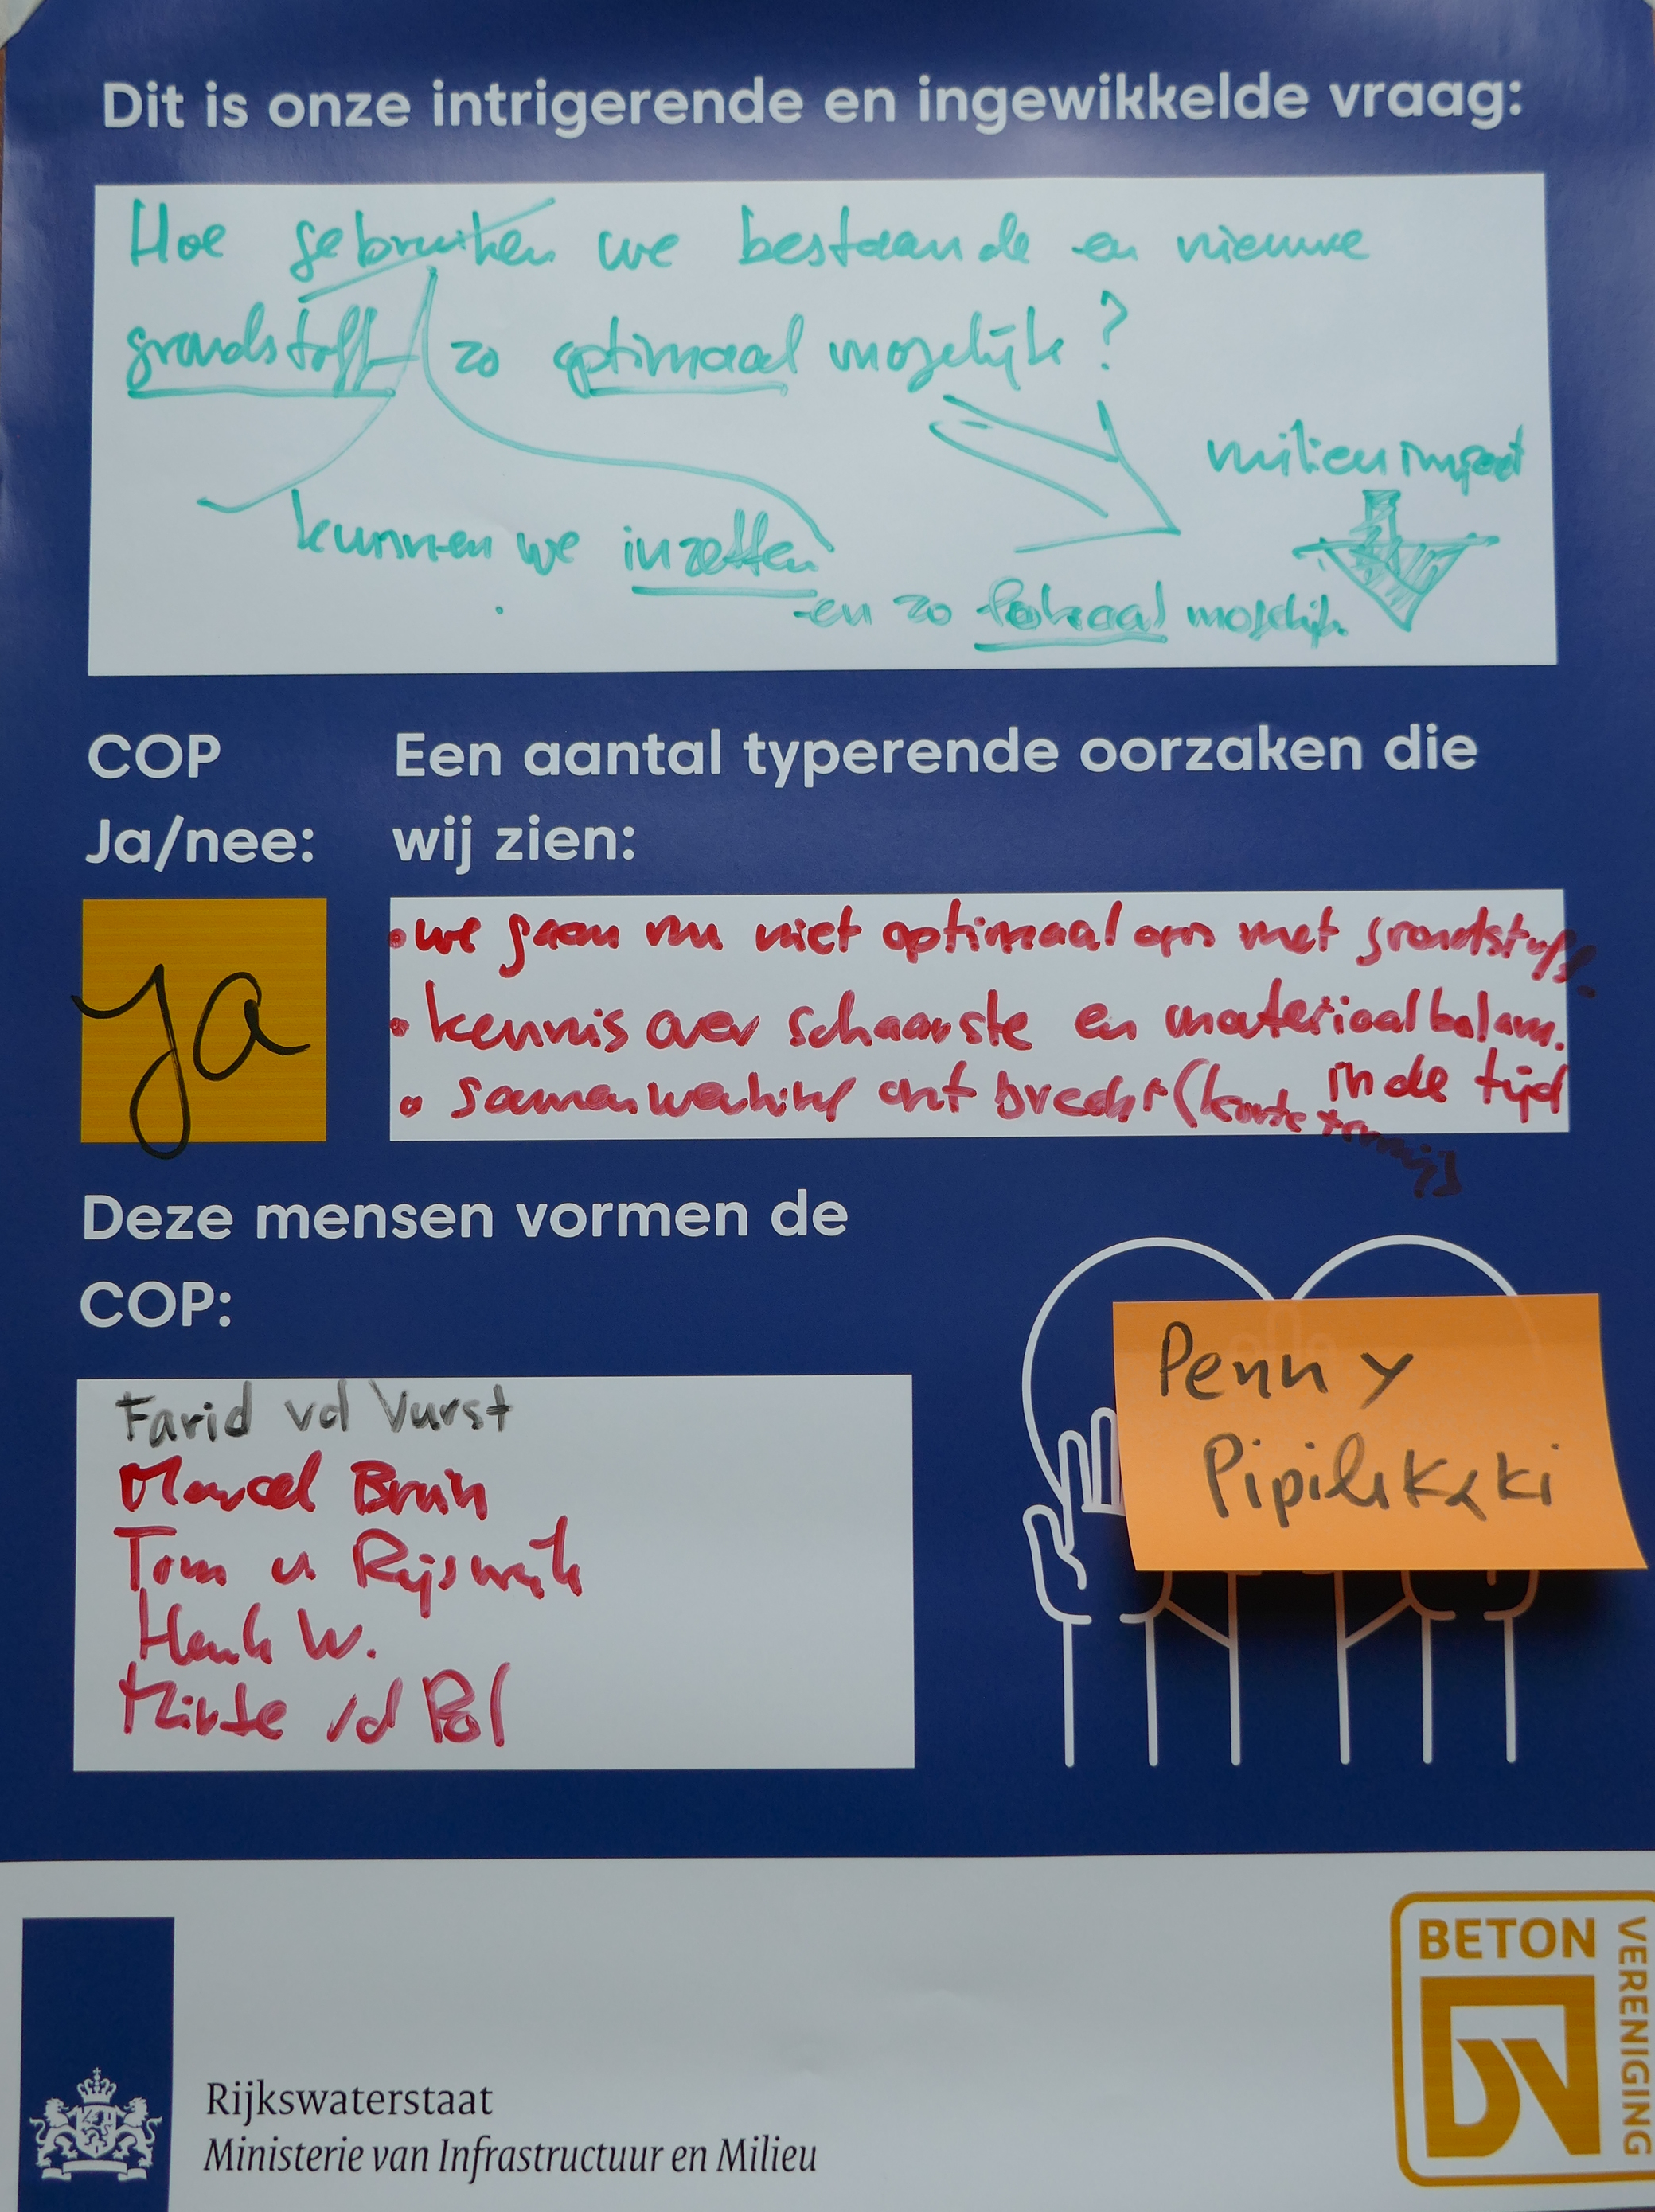 Dit is onze intrigerende en ingewikkelde vraag:
Hoe gebruiken we bestaande en nieuwe
grondstoff zo optimaal mogelijk?
milieuimpact
kunnen we inzetten
en zo lokaal mogelijk
COP
Ja/nee:
ja
Een aantal typerende oorzaken die
wij zien:
• we gaan nu niet optimaal om met grondstoff.
• kennis over schaarste en materiaalbalans.
in de tijd
• samenwerking ontbreekt (korte termijn
Deze mensen vormen de
COP:
Farid vd Vurst
Marcel Bruin
Tom v Rijswijk
Henk W.
vd Pol
Penny
BETON
VERENIGING
Rijkswaterstaat
Ministerie van Infrastructuur en Milieu